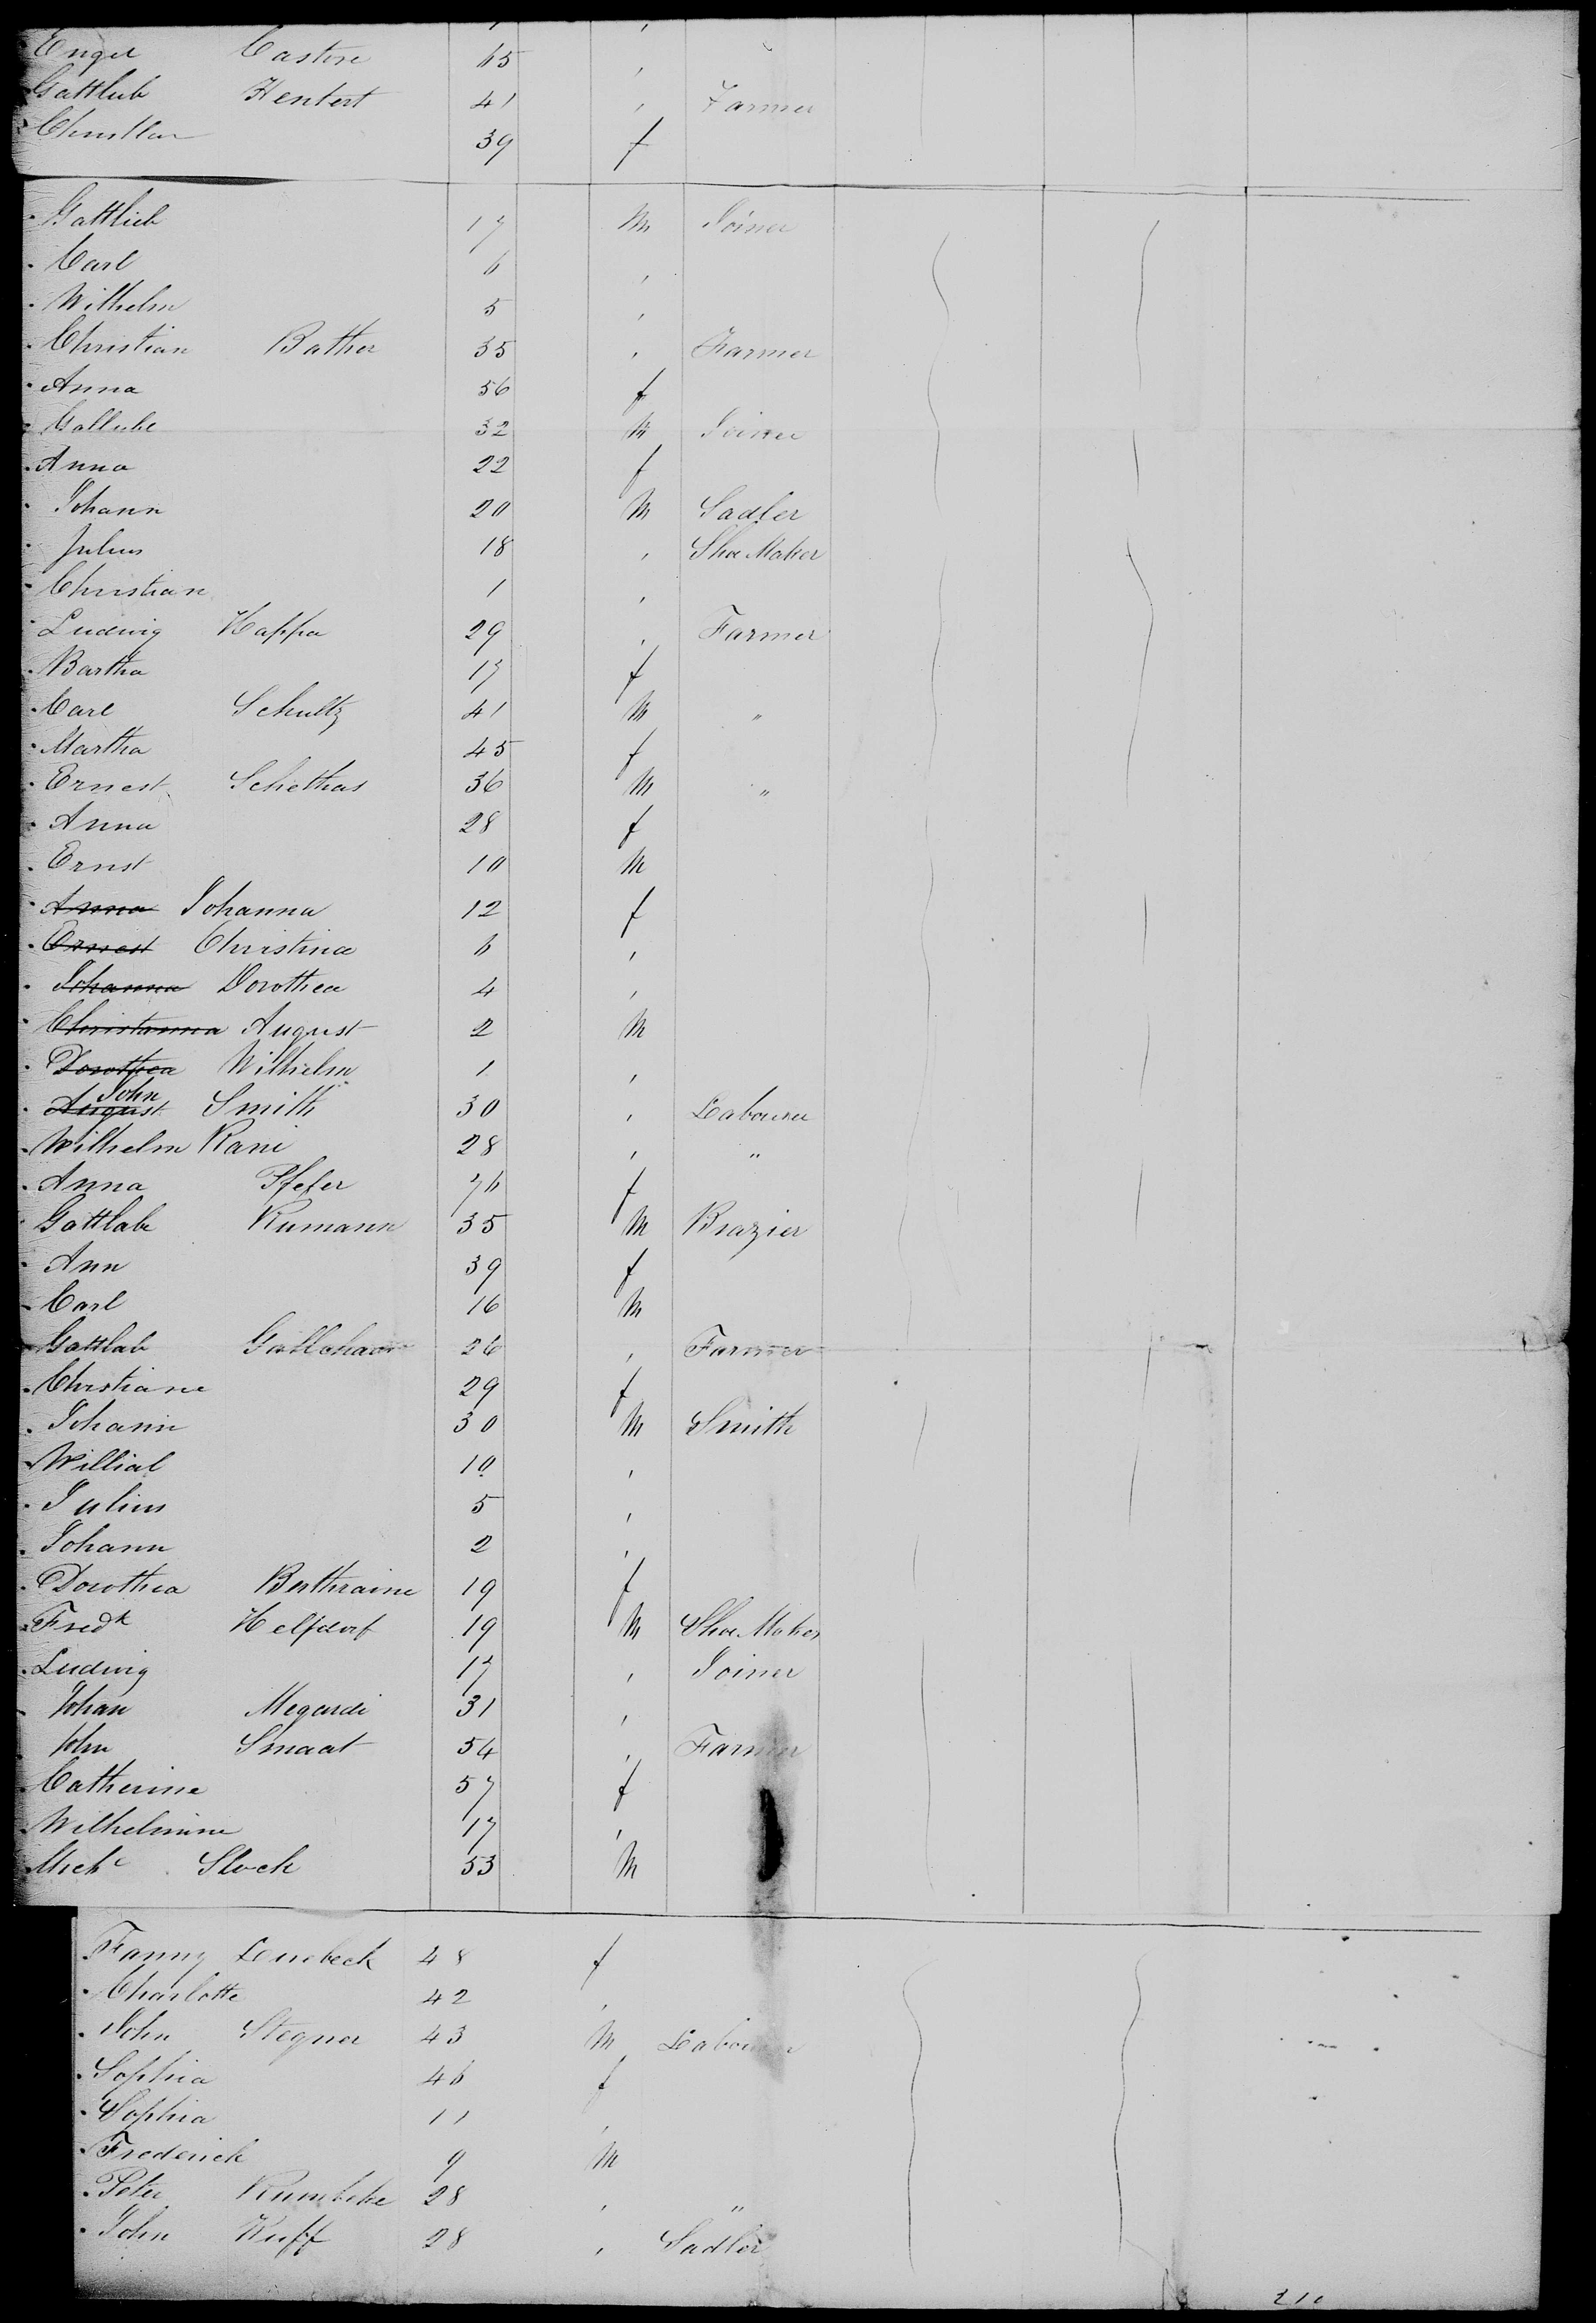 Engel Castore 65 '
Gottlieb Hentert 41 ' Farmer
39 f
Gottlieb 17 M Joiner
Carl 6 '
Wilhelm 5 '
Christian Bather 35 ' Farmer
Anna 56 f
32 M Joiner
Anna 22 f
Johann 20 M Sadler
Julius 18 ' Shoe Maker
Christian 1 '
Ludwig Kappa 29 ' Farmer
Bartha 17 f
Carl Schultz 41 M "
Martha 45 f
Ernest Schethas 36 M "
Anna 28 f
Ernst 10 M
Anna Johanna 12 f
Ernest Christina 6 '
Johanna Dorothea 4 '
Christanna August 2 M
Dorothea Wilhelm 1 '
John
August Smith 30 ' Labourer
Wilhelm Rani 28 ' "
Anna Pfefer 76 f
Gottlabe Rumann 35 M Brazier
Ann 39 f
Carl 16 M
Gottlab 26 ' Farmer
Christiane 29 f
Johann 30 M Smith
Willial 10 '
Julius 5 '
Johann 2 '
Dorothea Berthraine 19 f
Fredk Helfdorf 19 M Shoe Maker
Ludwig 17 ' Joiner
Johan Megardi 31 '
John Smaat 54 ' Farmer
Catherine 57 f
Wilhelmine 17 '
Michl Slock 53 M
Fanny Lensbeck 48 f
Charlotte 42 '
John Stegner 43 M Labourer
Sophia 46 f
Sophia 11 '
Frederick 9 M
Peter Rumbeke 28 ' "
John Kuff 28 ' Sadler
210